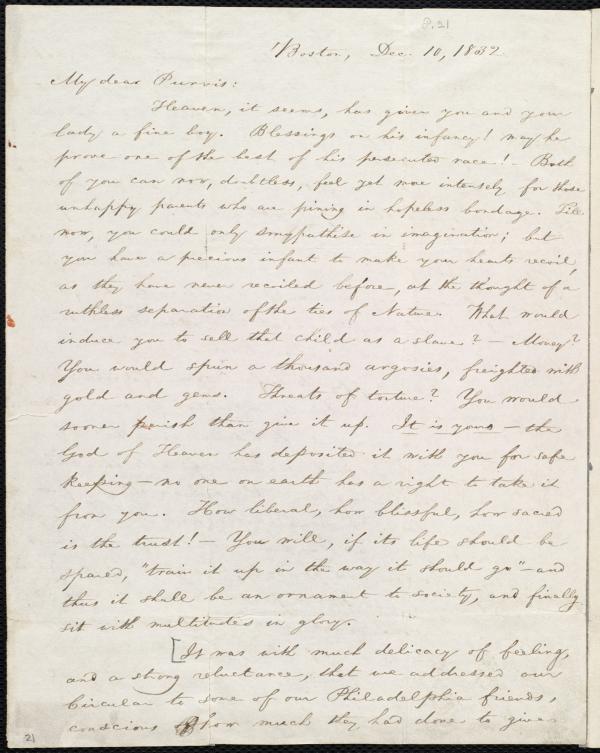 P. 21
Boston, Dec. 10, 1832.
My dear Purvis:
Heaven, it seems, has given you and your
lady a fine boy. Blessings on his infancy! may he
prove one of the best of his persecuted race! - Both
of you can now, doubtless, feel yet more intensely for those
unhappy parents who are pining in hopeless bondage. Till
now, you could only smypathise in imagination; but
you have a precious infant to make your hearts recoil,
as they have never recoiled before, at the thought of a
ruthless separation of the ties of Nature. What would
induce you to sell that child as a slave? - Money?
You would spurn a thousand argosies, freighted with
gold and gems. Threats of torture? You would
sooner perish than give it up. It is yours - the
God of Heaven has deposited it with you for safe
keeping - no one on earth has a right to take it
from you. How liberal, how blissful, how sacred
is the trust! - You will, if its life should be
spared, "train it up in the way it should go" - and
thus it shall be an ornament to society, and finally
sit with multitudes in glory.
[It was with much delicacy of feeling,
and a strong reluctance, that we addressed our
Circular to some of our Philadelphia friends,
conscious of how much they had done to give
21